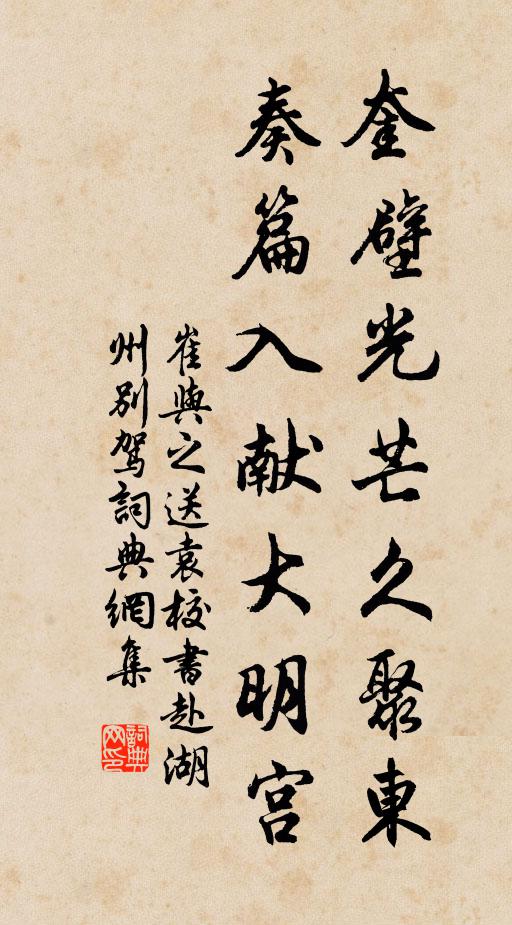 奎壁光芒久聚東
奏篇入献大明宫
崔與之送袁校書赴湖
州别駕詞典網集
詞典网印